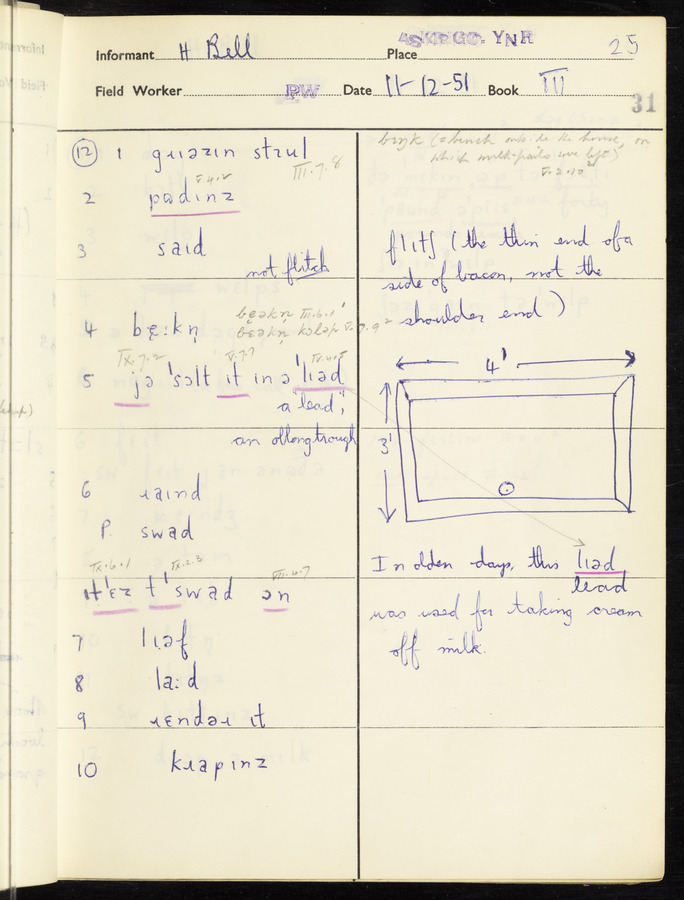 Informant H Bell Place ASKRIGG. YNR 25
Field Worker PW Date 11-12-51 Book III
31
12 1 gɹɪəzɪn stɹul
III.7.8
2 padɪnz
V.4.2
3 saɪd
not flitch
4 bɛ:kn̩
bɛəkn̩ III.6.1
bɛəkn̩ kɔləp V.7.9
IX.7.2 V.7.7
5 jə 'sɔlt ɪt in ə 'lɪəd
a "lead",
an oblong trough
6 ɹaɪnd
P. swad
IX.6.1 IX.2.3 VII.4.7
ɪt'ɛz t'swad ɔn
7 lɪəf
8 la:d
9 ɹɛndəɹ ɪt
10 kɹapɪnz
bɪŋk (= bench outside the house, on
which milk-pails were left)
flɪtʃ (the thin end of a
side of bacon, not the
shoulder end)
4'
3'
In olden days, this lɪəd
lead
was used for taking cream
off milk.